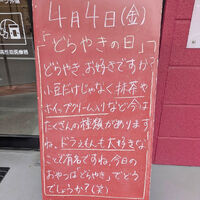 4月4日(金)
「どらやきの日」
どらやき、お好きですか
小豆だけじゃなく抹茶や
ホイップクリーム入りなど今は
たくさんの種類があります
ね。ドラえもんも大好きな
こと有名ですね。今日の
おやつは「どらやき」でどう
でしょうか?(笑)